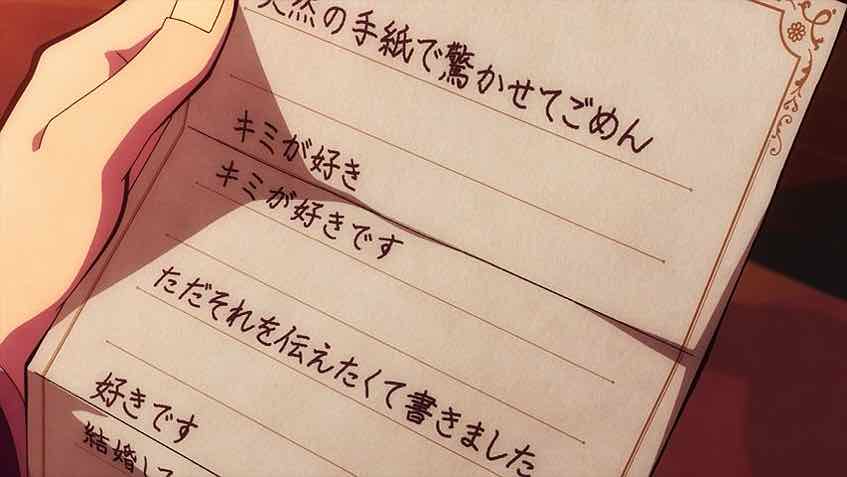 突然の手紙で驚かせてごめん
キミが好き
キミが好きです
ただそれを伝えたくて書きました
好きです
結婚して